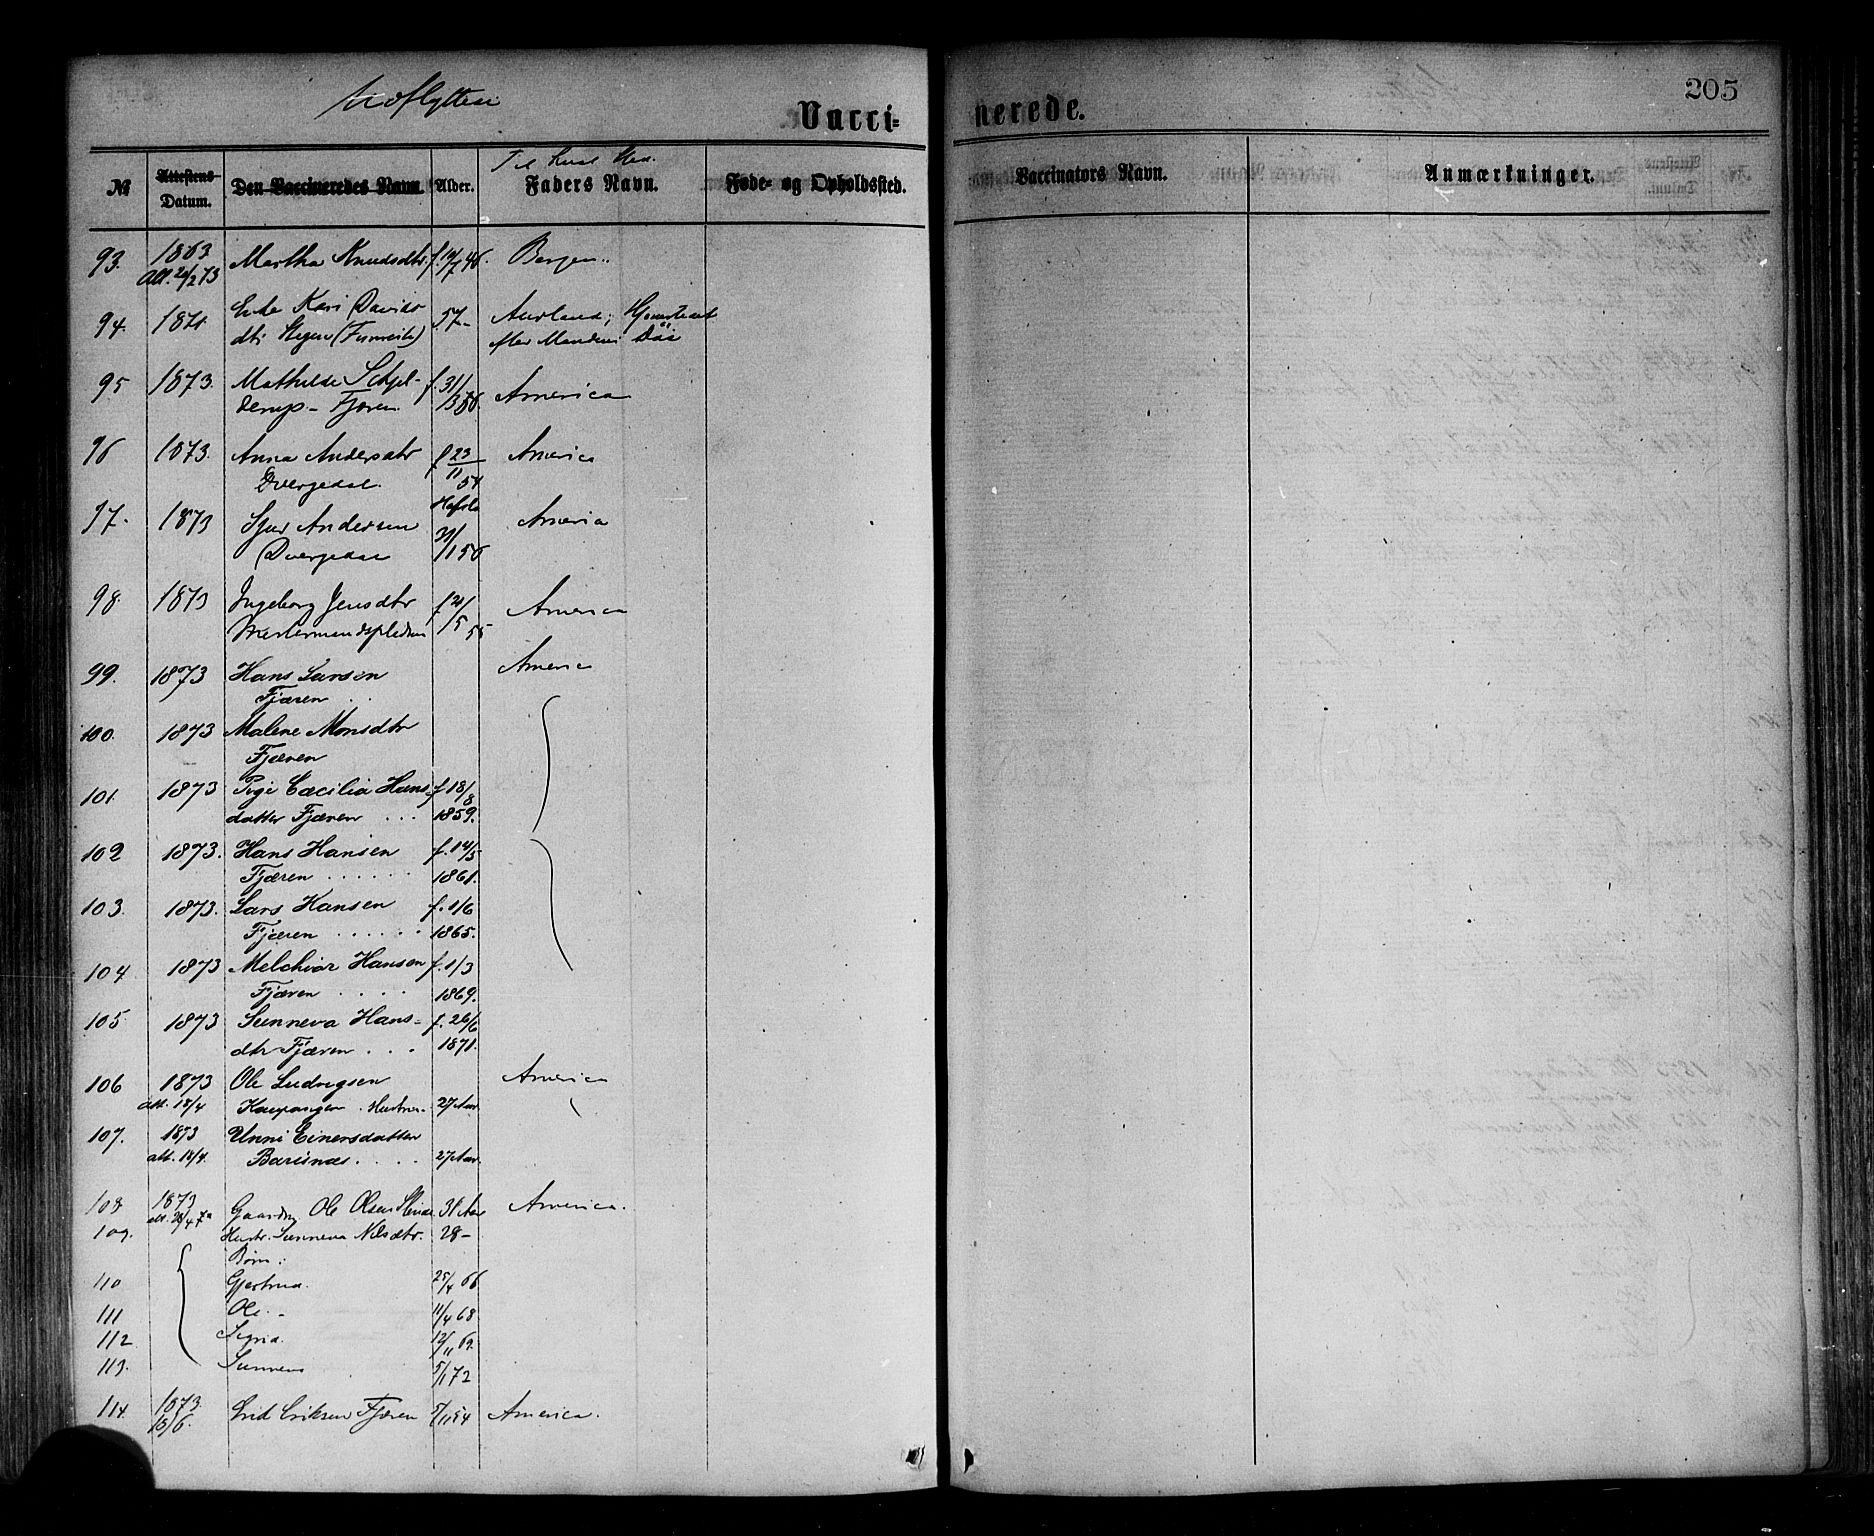 Udflyttede
205
Vacci-
nerede.
Til hvad Sted.
№ Attestens Datum. Den Vaccineredes Navn. Alder. Faders Navn. Føde- og Opholdssted. Vaccinators Navn. Anmærkninger.
93. 1863 Martha Knudsdtr. f. 19/7 46. Bergen.
Att. 20/2 73
94. 1871. Enke Kari Davids 57- Aurland; Hjemstedet
dtr. Stegen (Fimreite) efter Manden Død
95 1873. Mathilde Schjel- f. 31/ America
derup - Fjæren. /3 56.
96 1873. Anna Andersdtr f 23/ America
Dvergedal. 11 54
Hafslo
97. 1873 Sjur Andersen America
Dvergedal 31/1 56
98. 1873 Ingeborg Jensdtr f 21/5 America
55
99. 1873 Hans Larsen America
Fjæren
100. 1873 Malene Monsdtr
Fjæren
101. 1873 Pige Cæcilia Hans- f. 18/8
datter Fjæren . . . 1859.
102 1873. Hans Hansen f. 14/5
Fjæren . . . . . . 1861.
103. 1873. Lars Hansen f. 1/6
Fjæren . . . . . . 1865.
104 1873 Melchior Hansen f. 1/3
Fjæren . . . . . 1869.
105. 1873 Sunneva Hans- f. 26/6
dtr Fjæren . . . 1871.
106 1873 Ole Ludvigsen America
att. 18/4 Kaupanger . Hustru - 27 Aar
107. 1873 Unni Einersdatter
att. 18/4. Barsnæs . . . . 27 Aar.
108 1873 Gaardbr. Ole Olsen 31 Aar America.
att. 28/4 73
109. Hustr. Sunneva Nilsdtr. 28 -
Børn:
110 Gjertrud. 25/4 66
111 Ole. - 11/4 68
112 Sigrid. 12/11 69.
113. Sunneva 5/1 72
114. 1873 Erik Eriksen Fjæren 5/11 54 America.
13/6.